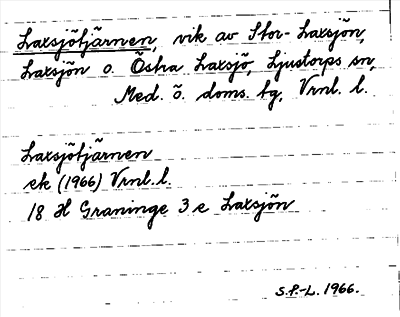 Laxsjötjärnen, vik av Stor-Laxsjön,
Laxsjön o. Östra Laxsjö, Ljustorps sn,
Med. ö. doms. tg, Vrnl. l.
Laxsjötjärnen
ek (1966) Vrnl. l.
18 H Graninge 3 e Laxsjön
S.P.-L. 1966.